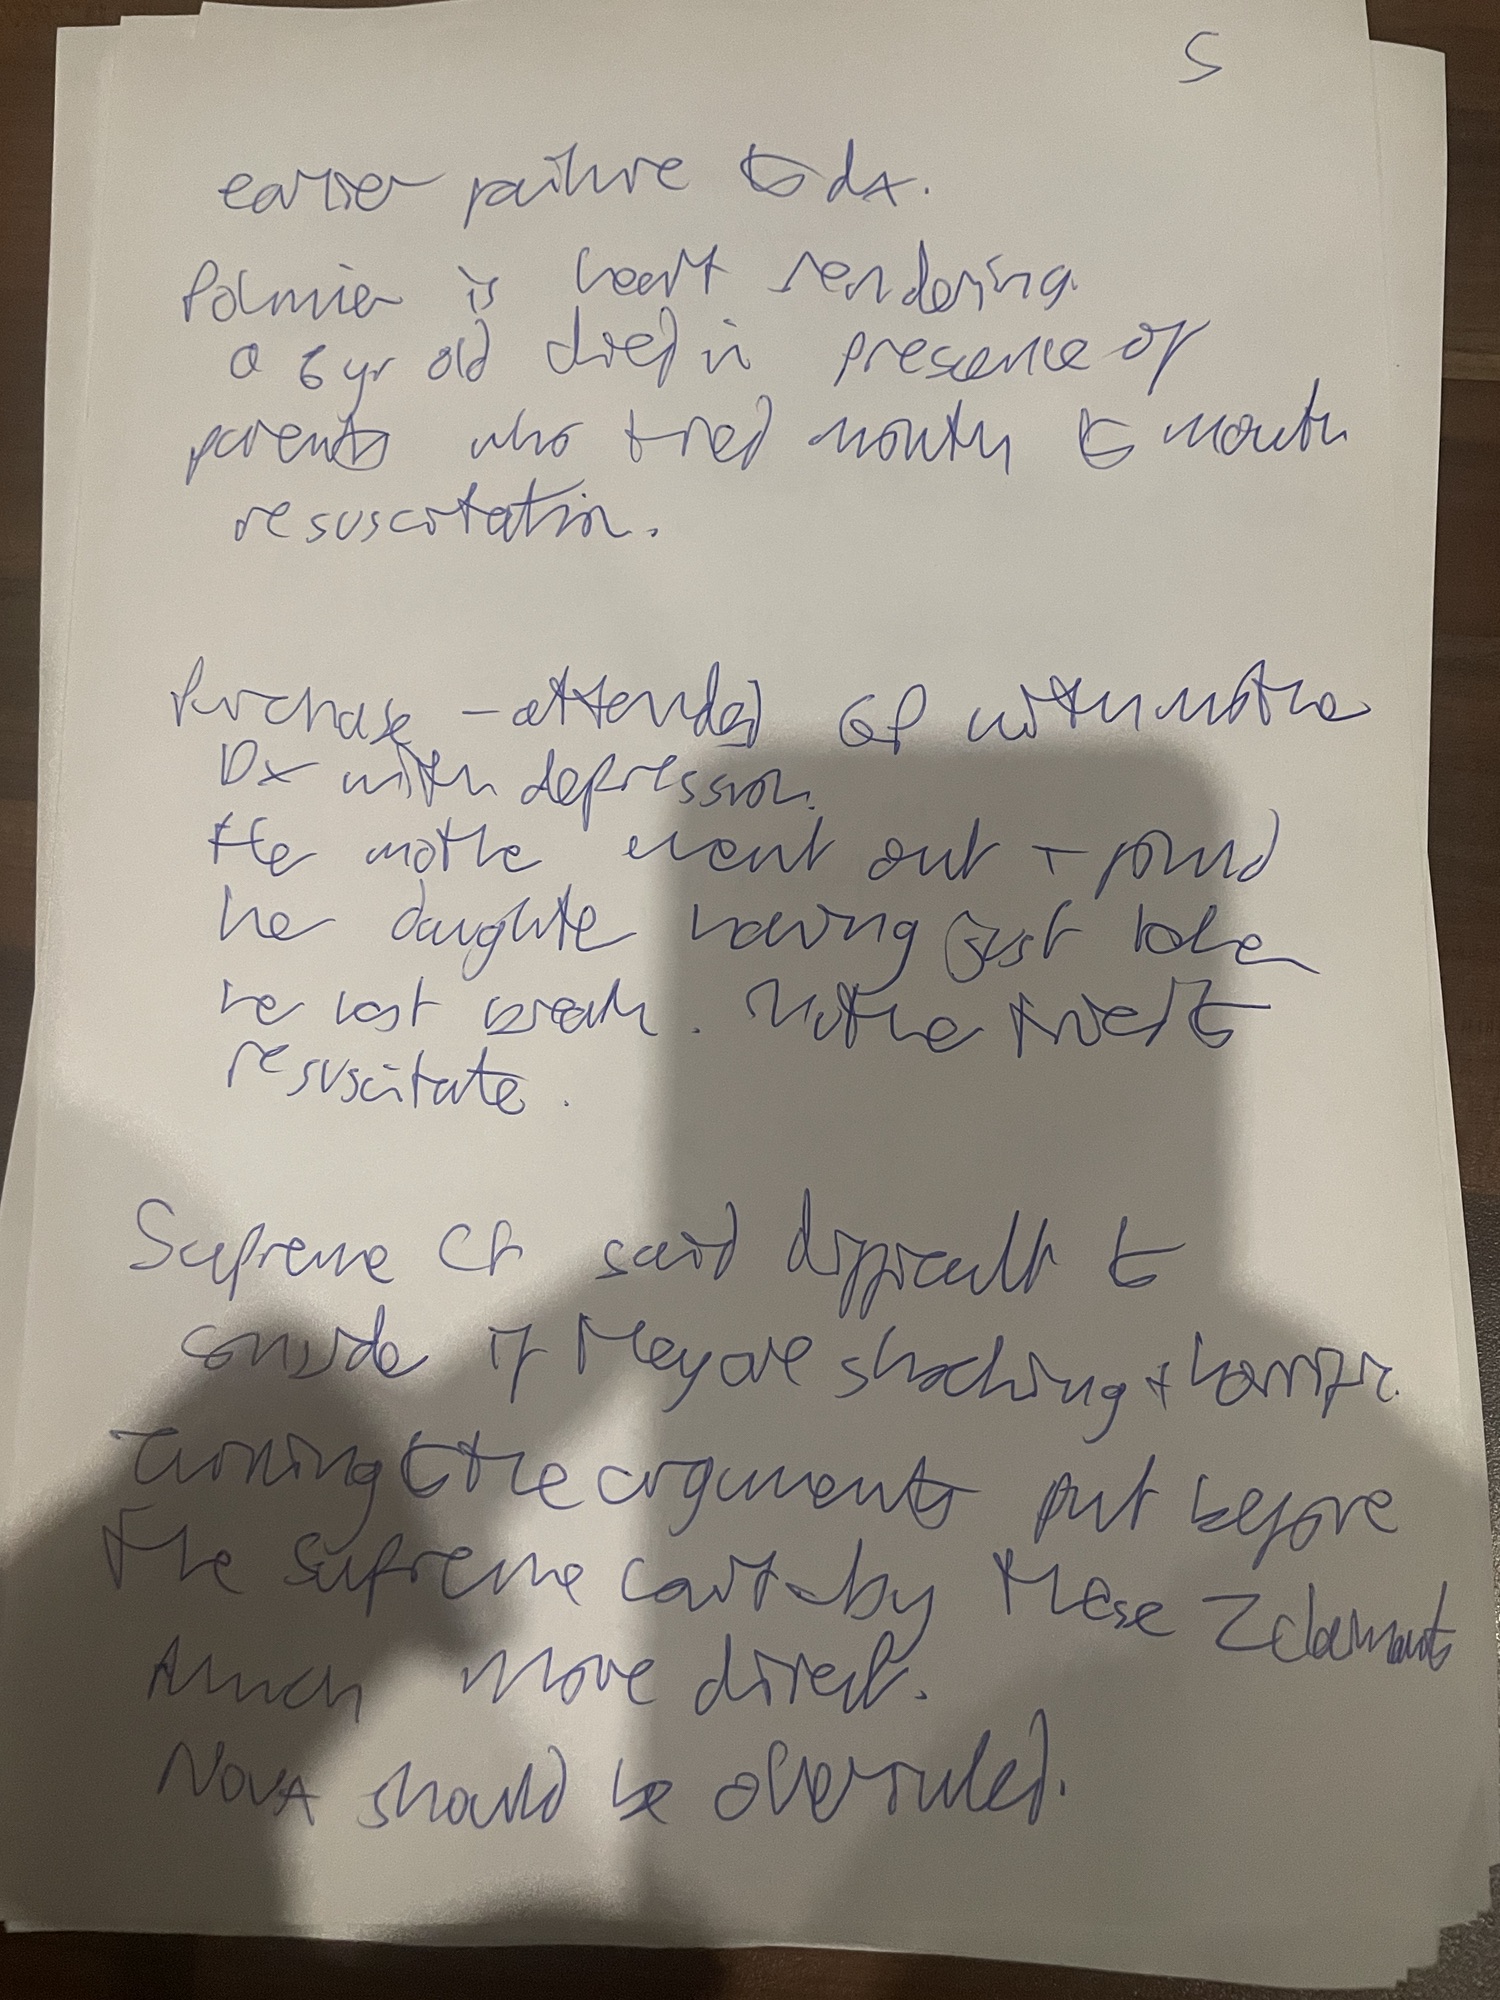 5
earlier failure to dx.
Polmier is heart rendering.
a 6 yr old died in presence of
parents who tried mouth to mouth
resuscitation.
Purchase - attended GP with mother
Dx with depression.
The mother went out + found
her daughter having just taken
her last breath. Mother tried to
resuscitate.
Supreme Ct said difficult to
consider if they are shocking + horrific.
Turning to the arguments put before
the Supreme Court by these 2 claimants
much more direct.
Nova should be overruled.